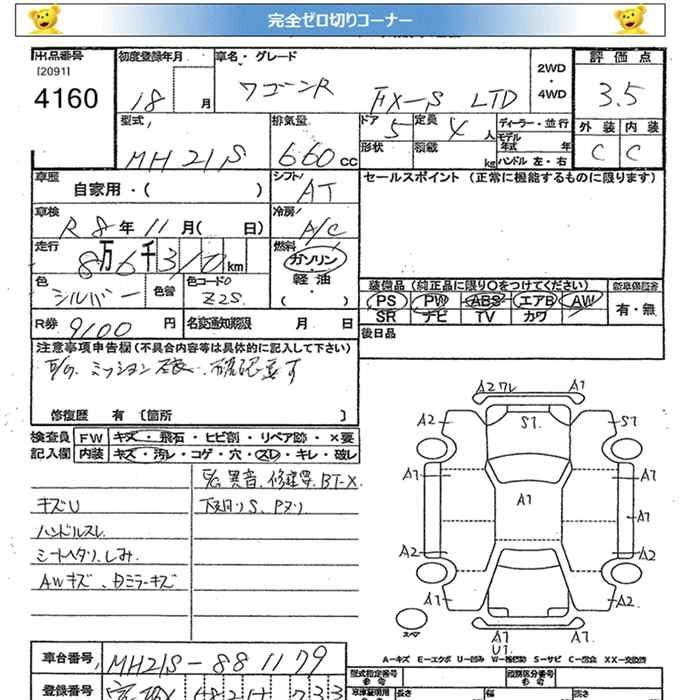 完全ゼロ切りコーナー
出品番号 初度登録年月 車名・グレード 2WD・4WD 評価点
[2091]
4160 18 月 ワゴンR FX-S LTD 3.5
型式 排気量 ドア 定員 ディーラー・並行 外装 内装
MH21S 660cc 5 4人 モデル年式 年 C C
形状 積載 kg ハンドル 左・右
車歴 シフト セールスポイント (正常に機能するものに限ります)
自家用・( ) AT
車検 冷房
R8年11月( 日) A/C
走行 燃料
8万6千310km ガソリン・軽油・( )
色 色替 色コードNo 装備品 (純正品に限り○をつけてください) 新車保証書
シルバー Z2S PS PW ABS エアB AW 有・無
SR ナビ TV カワ
R券 9100円 名変通知期限 月 日 後日品
注意事項申告欄 (不具合内容等は具体的に記入して下さい)
ミッション 確認要す
修復歴 有 〔箇所 〕
検査員記入欄 FW キズ・飛石・ヒビ割・リペア跡・×要
内装 キズ・汚レ・コゲ・穴・スレ・キレ・破レ
異音、修理要 BT-X
キズU 下廻りS、Pヌリ
ハンドルスレ
シートヘタリ、しみ
AWキズ、Dミラーキズ
A2ワレ A1
A2 S1 S1
A1 A1 A1
A1
A2 A2
A1 A2
スペア A1 A1
U1
A-キズ E-エクボ U-凹み W-補修跡 S-サビ C-腐食 XX-交換済
車台番号 MH21S-881179 型式指定番号 類別区分番号
登録番号 長さ 幅 高さ